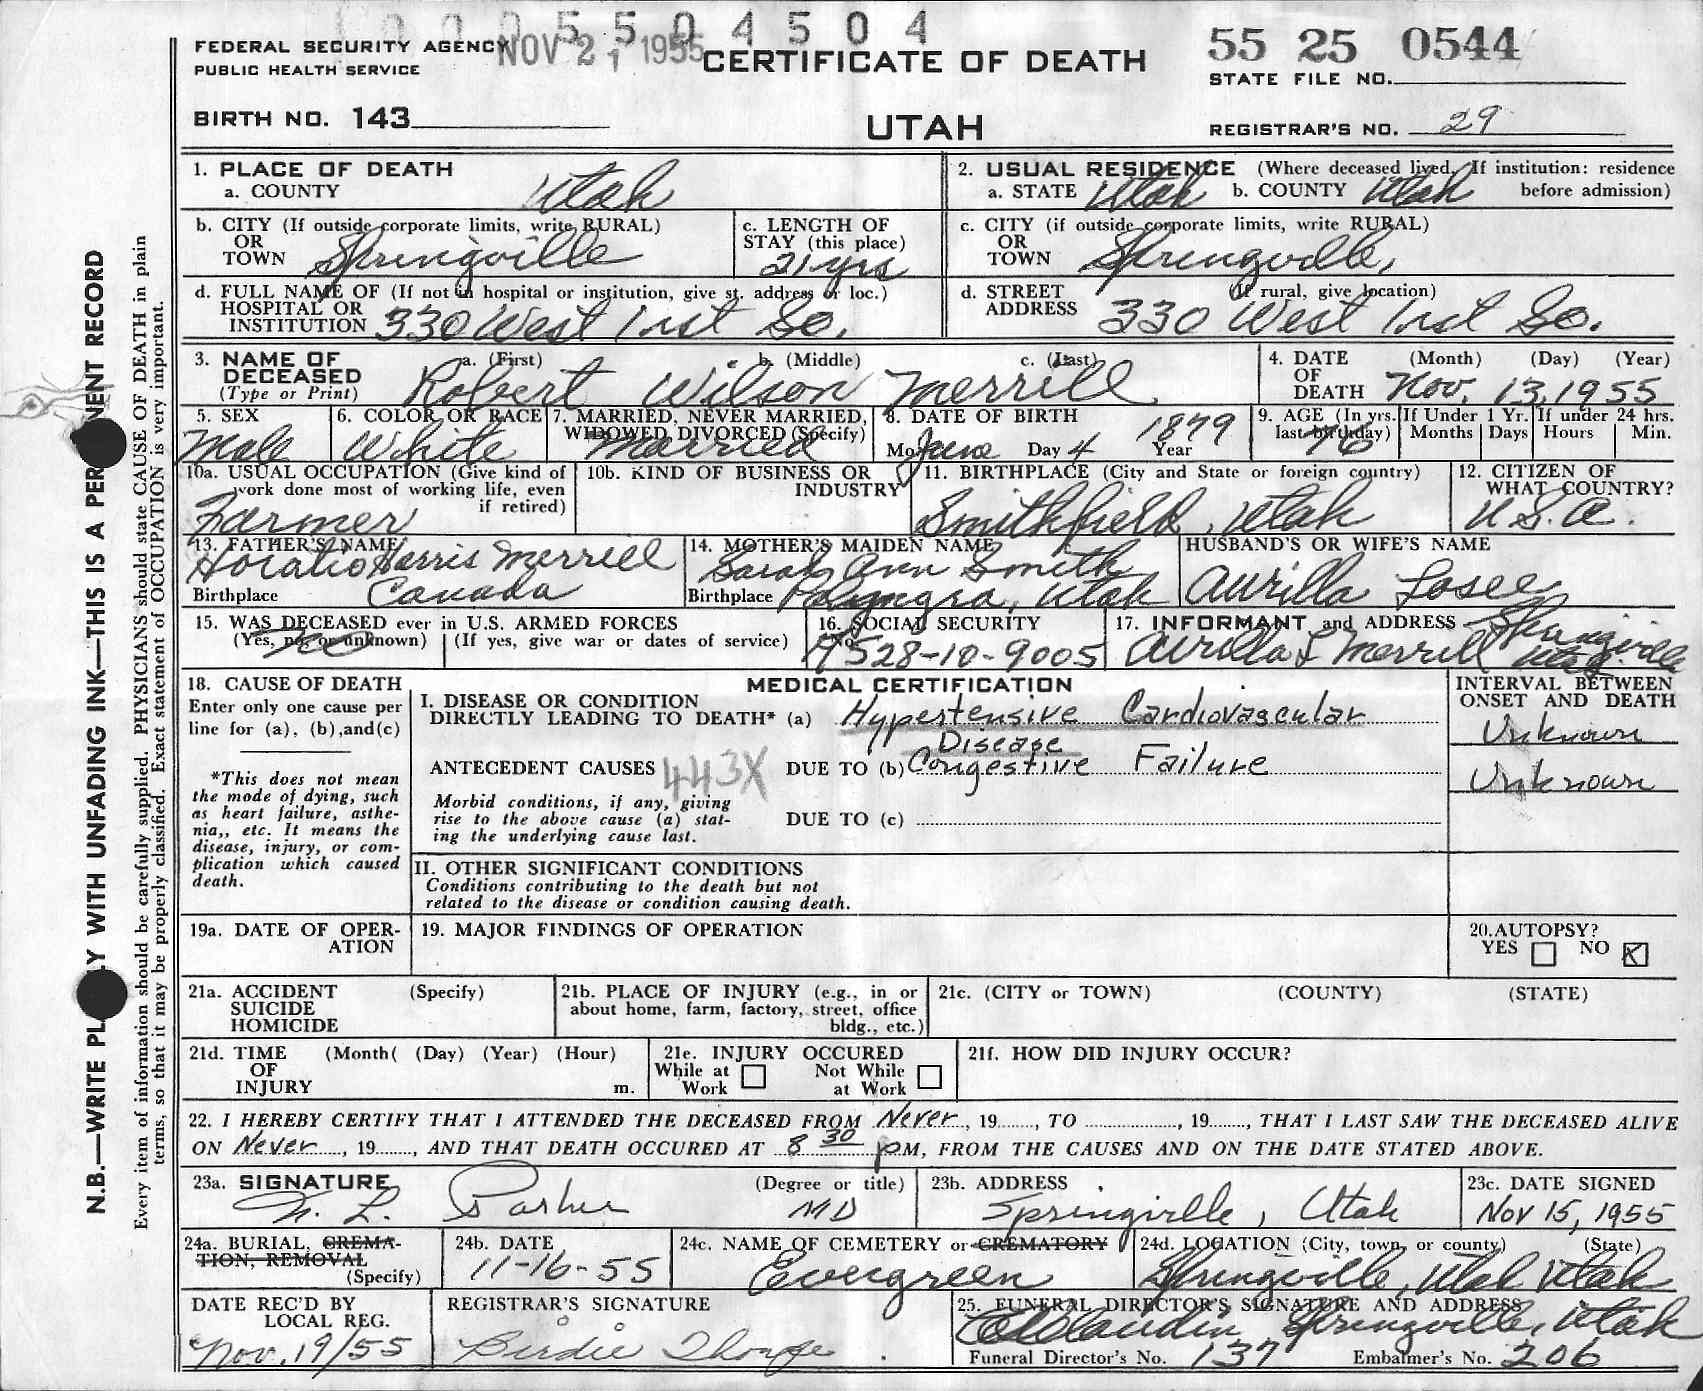 0005504504
FEDERAL SECURITY AGENCY NOV 21 1955 CERTIFICATE OF DEATH 55 25 0544
PUBLIC HEALTH SERVICE STATE FILE NO.
BIRTH NO. 143 UTAH REGISTRAR'S NO. 29
N.B.—WRITE PL Y WITH UNFADING INK—THIS IS A PER NENT RECORD
Every item of information should be carefully supplied. PHYSICIANS should state CAUSE OF DEATH in plain
terms, so that it may be properly classified. Exact statement of OCCUPATION is very important.
1. PLACE OF DEATH
a. COUNTY Utah
2. USUAL RESIDENCE (Where deceased lived. If institution: residence
a. STATE Utah b. COUNTY Utah before admission)
b. CITY (If outside corporate limits, write RURAL)
OR
TOWN Springville
c. LENGTH OF
STAY (this place)
21 yrs
c. CITY (if outside corporate limits, write RURAL)
OR
TOWN Springville,
d. FULL NAME OF (If not in hospital or institution, give st. address or loc.)
HOSPITAL OR
INSTITUTION 330 West 1st So.
d. STREET (If rural, give location)
ADDRESS 330 West 1st So.
3. NAME OF a. (First) b. (Middle) c. (Last)
DECEASED Robert Wilson Merrill
(Type or Print)
4. DATE (Month) (Day) (Year)
OF
DEATH Nov. 13, 1955
5. SEX
Male
6. COLOR OR RACE
White
7. MARRIED, NEVER MARRIED,
WIDOWED, DIVORCED (Specify)
Married
8. DATE OF BIRTH 1879
Mo June Day 4 Year
9. AGE (In yrs. If Under 1 Yr. If under 24 hrs.
last birthday) Months Days Hours Min.
76
10a. USUAL OCCUPATION (Give kind of
work done most of working life, even
if retired)
Farmer
10b. KIND OF BUSINESS OR
INDUSTRY
11. BIRTHPLACE (City and State or foreign country)
Smithfield, Utah
12. CITIZEN OF
WHAT COUNTRY?
U.S.A.
13. FATHER'S NAME
Horatio Harris Merrill
Birthplace Canada
14. MOTHER'S MAIDEN NAME
Sarah Ann Smith
Birthplace Utah
HUSBAND'S OR WIFE'S NAME
Aurilla Losee
15. WAS DECEASED ever in U.S. ARMED FORCES
(Yes, no, or unknown) (If yes, give war or dates of service)
no
16. SOCIAL SECURITY
No.
528-10-9005
17. INFORMANT and ADDRESS Springville
Aurilla L Merrill Utah
18. CAUSE OF DEATH
Enter only one cause per
line for (a), (b), and (c)
*This does not mean
the mode of dying, such
as heart failure, asthe-
nia,, etc. It means the
disease, injury, or com-
plication which caused
death.
MEDICAL CERTIFICATION
I. DISEASE OR CONDITION
DIRECTLY LEADING TO DEATH* (a) Hypertensive Cardiovascular
Disease
ANTECEDENT CAUSES 443X DUE TO (b) Congestive Failure
Morbid conditions, if any, giving
rise to the above cause (a) stat-
ing the underlying cause last.
DUE TO (c)
INTERVAL BETWEEN
ONSET AND DEATH
Unknown
Unknown
II. OTHER SIGNIFICANT CONDITIONS
Conditions contributing to the death but not
related to the disease or condition causing death.
19a. DATE OF OPER-
ATION
19. MAJOR FINDINGS OF OPERATION
20. AUTOPSY?
YES NO X
21a. ACCIDENT (Specify)
SUICIDE
HOMICIDE
21b. PLACE OF INJURY (e.g., in or
about home, farm, factory, street, office
bldg., etc.)
21c. (CITY or TOWN) (COUNTY) (STATE)
21d. TIME (Month( (Day) (Year) (Hour)
OF
INJURY m.
21e. INJURY OCCURED
While at Not While
Work at Work
21f. HOW DID INJURY OCCUR?
22. I HEREBY CERTIFY THAT I ATTENDED THE DECEASED FROM Never, 19......, TO ................, 19......, THAT I LAST SAW THE DECEASED ALIVE
ON Never......, 19......, AND THAT DEATH OCCURED AT 8 30 PM, FROM THE CAUSES AND ON THE DATE STATED ABOVE.
23a. SIGNATURE (Degree or title)
Parker MD
23b. ADDRESS
Springville, Utah
23c. DATE SIGNED
Nov 15, 1955
24a. BURIAL, CREMA-
TION, REMOVAL
(Specify)
24b. DATE
11-16-55
24c. NAME OF CEMETERY or CREMATORY
Evergreen
24d. LOCATION (City, town, or county) (State)
Springville, Utah Utah
DATE REC'D BY
LOCAL REG.
Nov. 19/55
REGISTRAR'S SIGNATURE
Birdie Thorpe
25. FUNERAL DIRECTOR'S SIGNATURE AND ADDRESS
Springville, Utah
Funeral Director's No. 137 Embalmer's No. 206